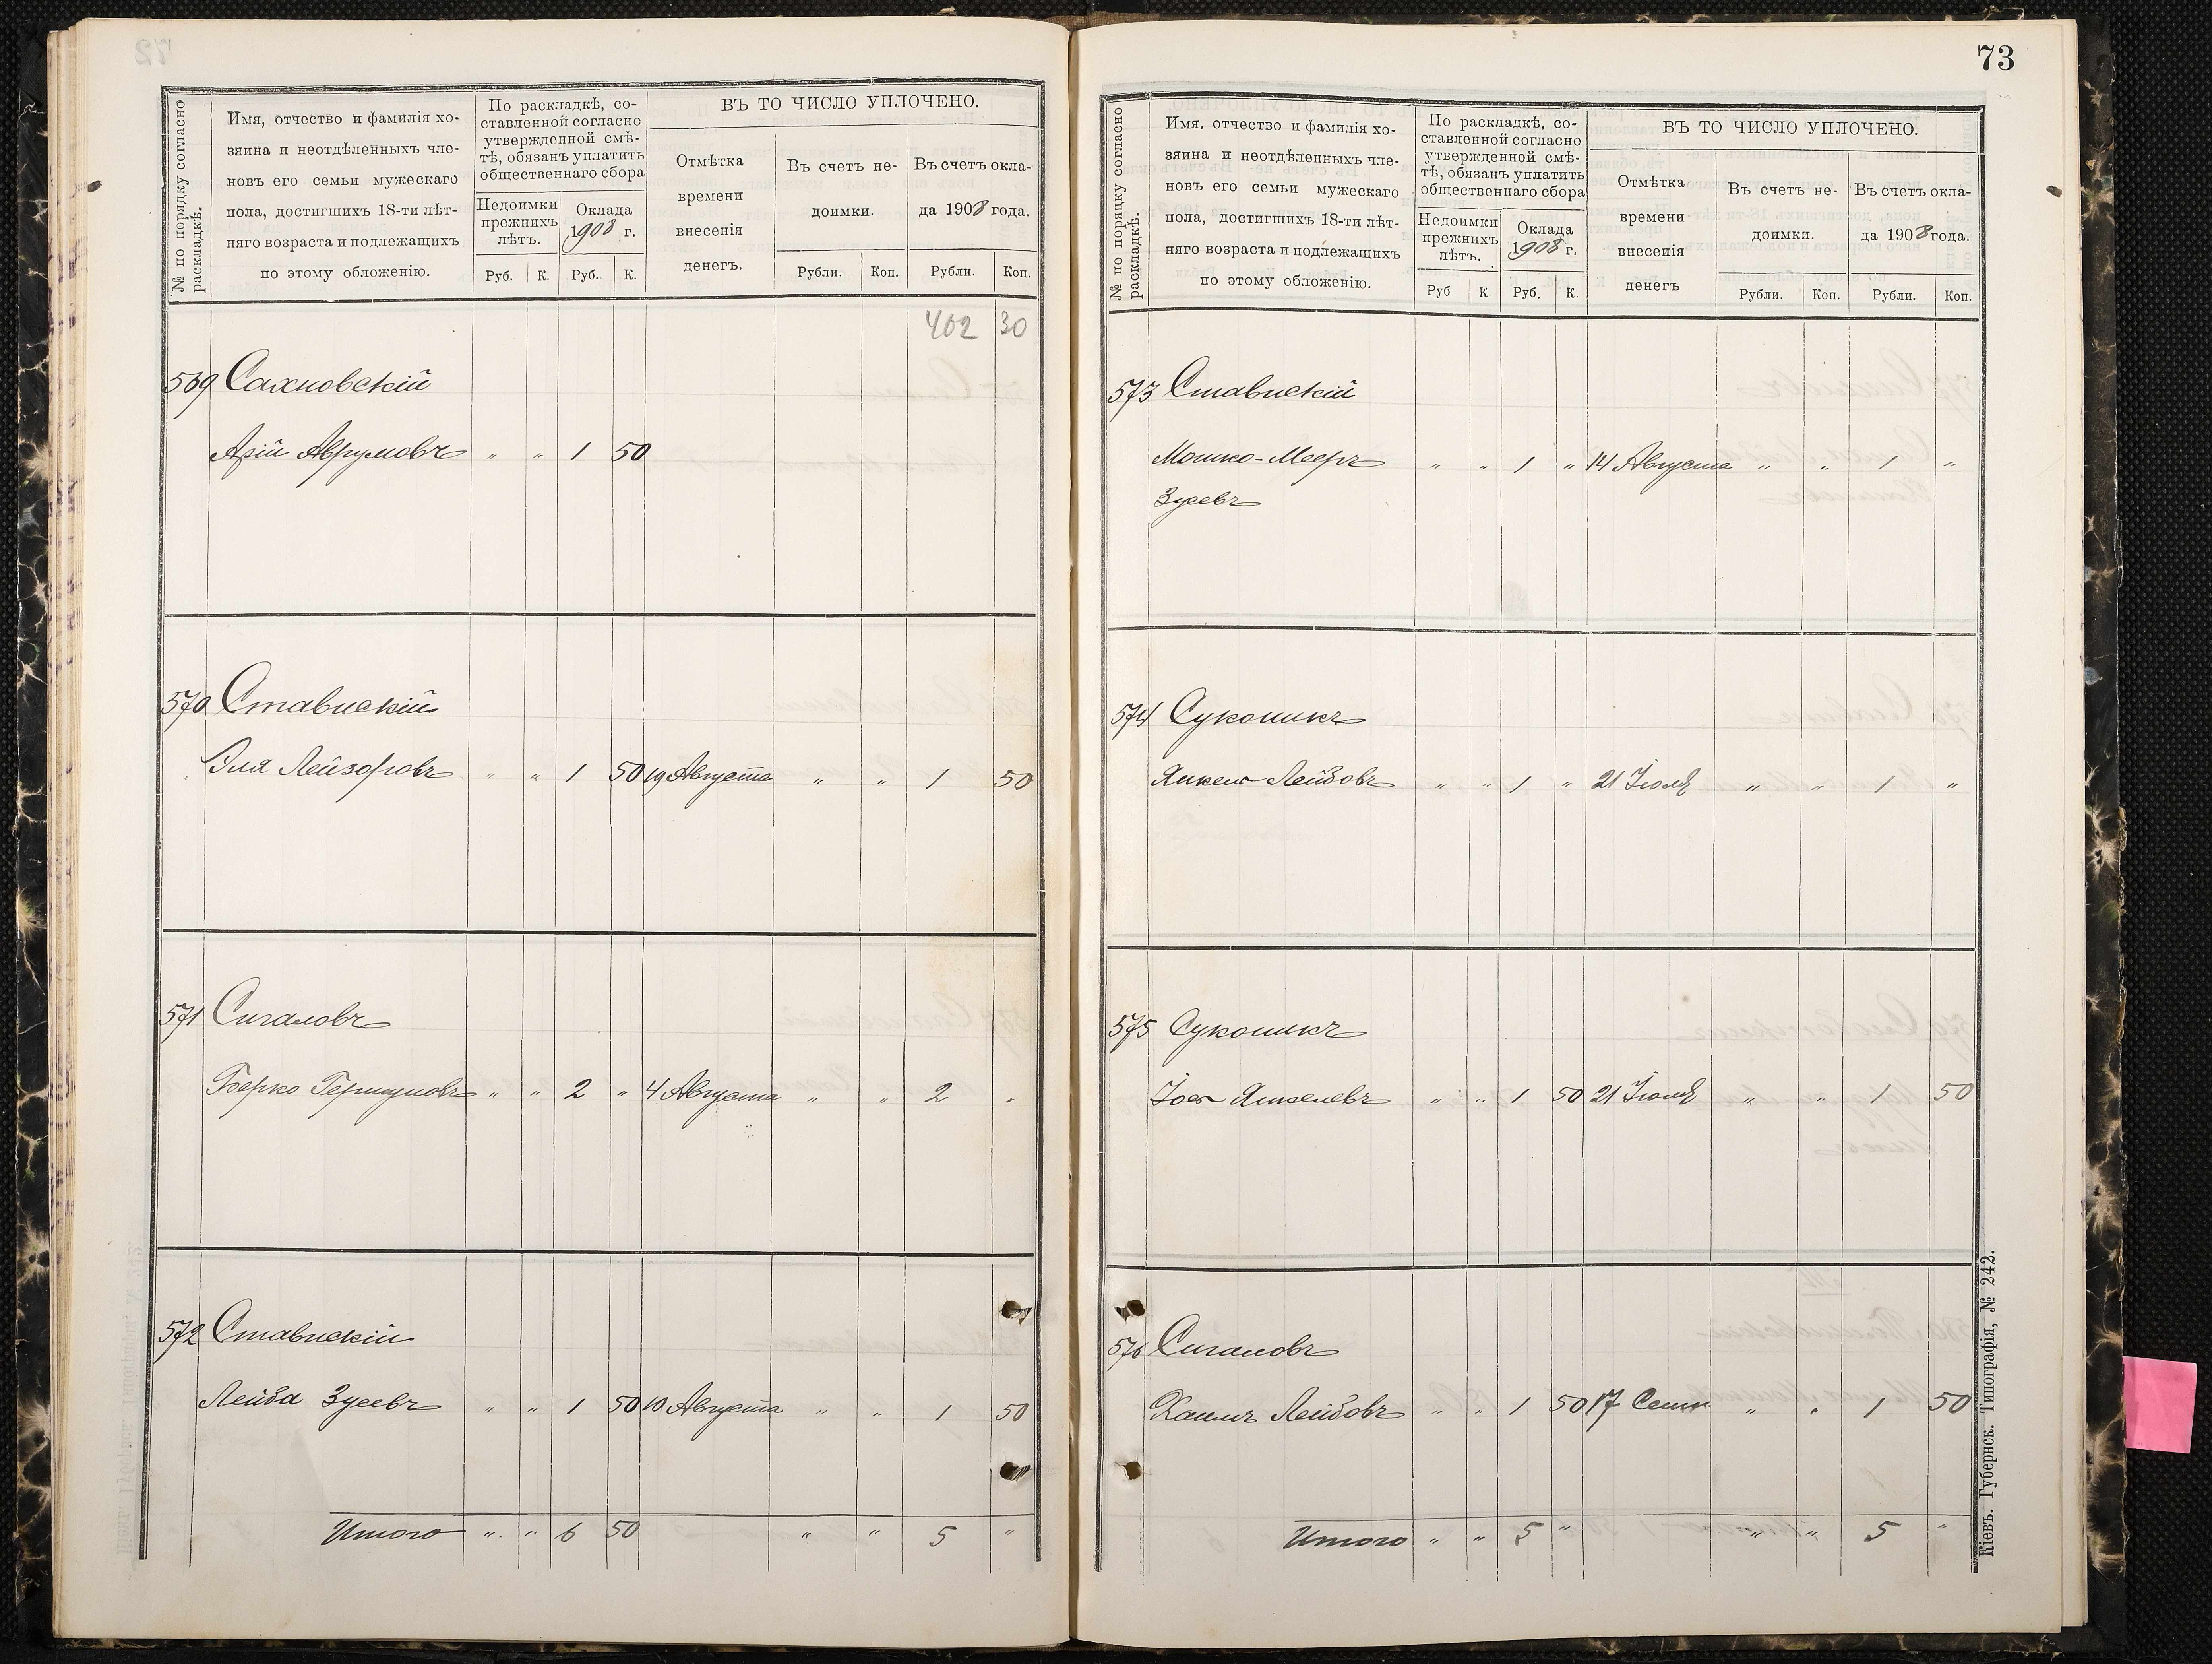 № по порядку согласно раскладкѣ.
Имя, отчество и фамилія хо-
зяина и неотдѣленныхъ чле-
новъ его семьи мужескаго
пола, достигшихъ 18-ти лѣт-
няго возраста и подлежащихъ
по этому обложенію.
По раскладкѣ, со-
ставленной согласно
утвержденной смѣ-
тѣ, обязанъ уплатить
общественнаго сбора
Недоимки прежнихъ лѣтъ.
Оклада 1908 г.
Руб. К. Руб. К.
ВЪ ТО ЧИСЛО УПЛОЧЕНО.
Отмѣтка
времени
внесенія
денегъ.
Въ счетъ не-
доимки.
Въ счетъ окла-
да 1908 года.
Рубли. Коп. Рубли. Коп.
402 30
569 Сахновскій
Арій Аврумовъ " " 1 50
570 Ставискій
Эля Лейзоровъ " " 1 50 19 Августа " " 1 50
571 Сигаловъ
Берко Гершуновъ " " 2 " 4 Августа " " 2 "
572 Ставискій
Лейба Зусевъ " " 1 50 10 Августа " " 1 50
Итого " " 6 50 " " 5 "
73
№ по порядку согласно раскладкѣ.
Имя. отчество и фамилія хо-
зяина и неотдѣленныхъ чле-
новъ его семьи мужескаго
пола, достигшихъ 18-ти лѣт-
няго возраста и подлежащихъ
по этому обложенію.
По раскладкѣ, со-
ставленной согласно
утвержденной смѣ-
тѣ, обязанъ уплатить
общественнаго сбора
Недоимки прежнихъ лѣтъ.
Оклада 1908 г.
Руб. К. Руб. К.
ВЪ ТО ЧИСЛО УПЛОЧЕНО.
Отмѣтка
времени
внесенія
денегъ
Въ счетъ не-
доимки.
Въ счетъ окла-
да 1908 года.
Рубли. Коп. Рубли. Коп.
573 Ставискій
Мошко-Мееръ " " 1 " 14 Августа " " 1 "
Зусевъ
574 Сукошикъ
Янкель Лейбовъ " " 1 " 21 Іюля " " 1 "
575 Сукошикъ
Іось Янкелевъ " " 1 50 21 Іюля " " 1 50
576 Сигаловъ
Хаимъ Лейбовъ " " 1 50 17 Сент " " 1 50
Итого " " 5 " " " 5 "
Кіевъ. Губернск. Типографія, № 242.